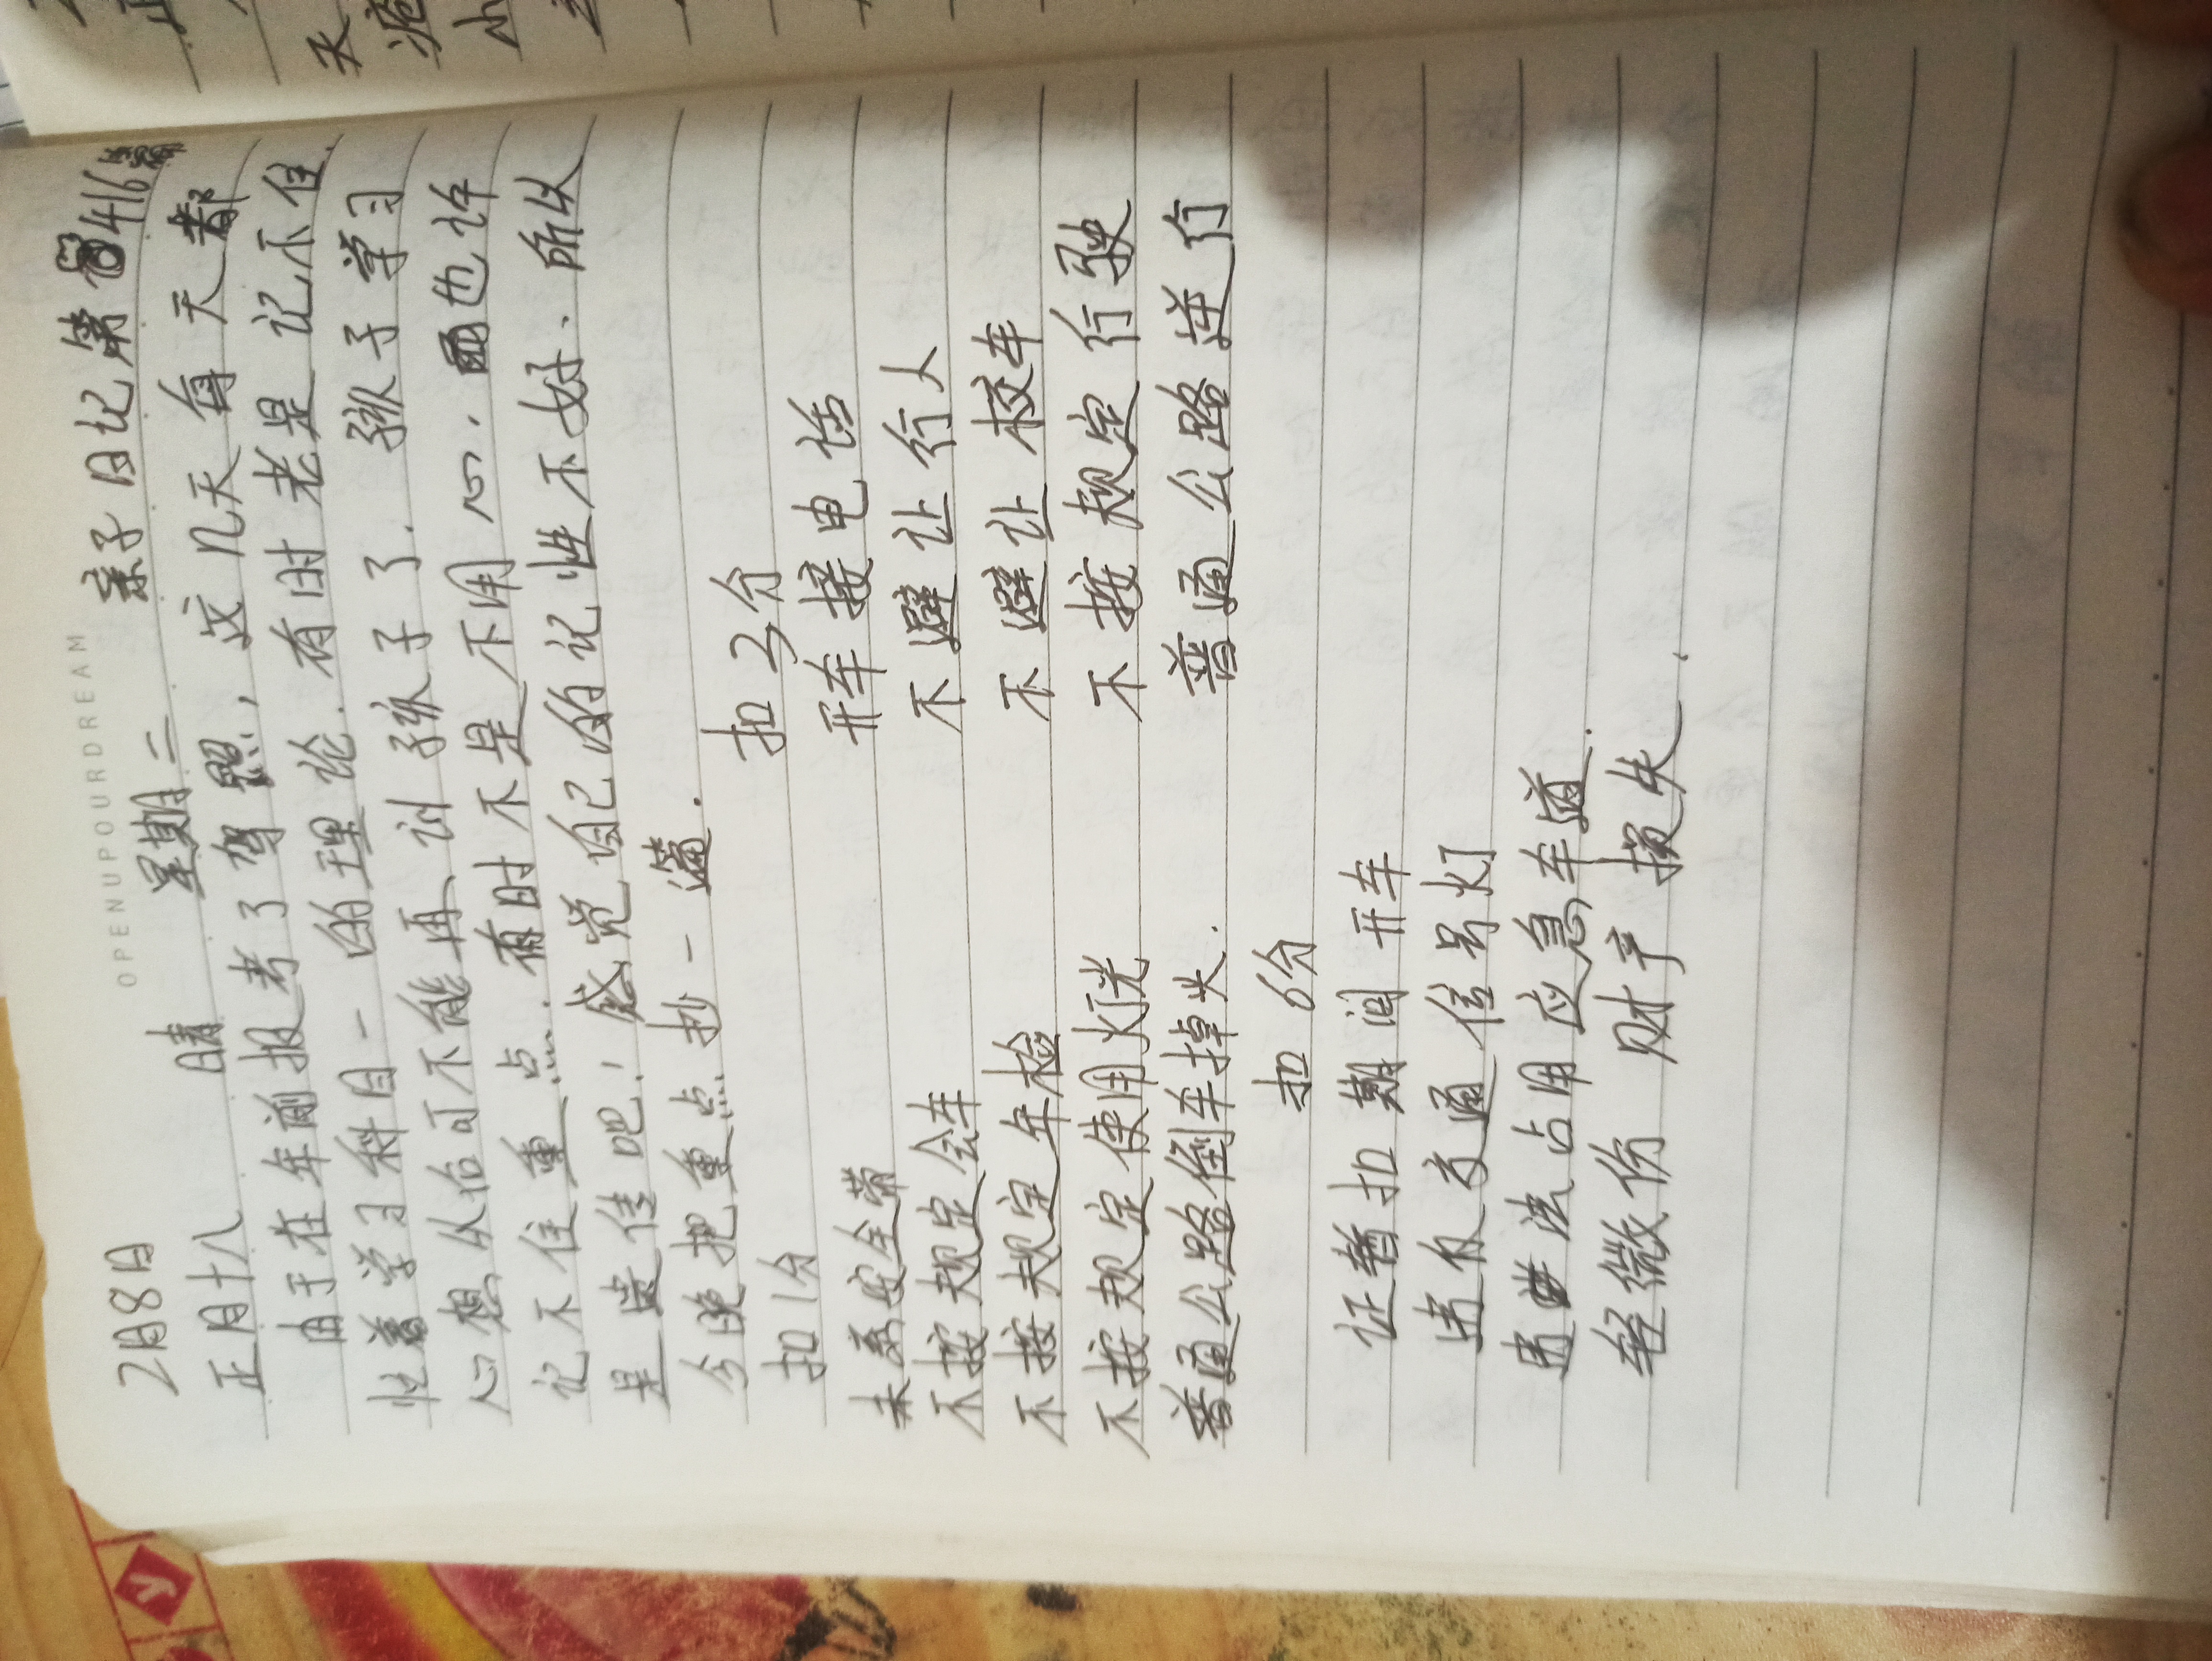 OPENUPOURDREAM
2月8日 亲子日记第416篇
正月十八 晴 星期二
由于在年前报考了驾照,这几天每天都
忙着学习科目一的理论.有时老是记不住.
心想从怡可不能再训孩子了.孩子学习
记不住重点.有时不是不用心.也许
是遗传吧!感觉自己的记性不好、所以
今晚把重点抄一篇.
扣1分 扣2分
未系安全带 开车接电话
不按规定会车 不避让行人
不按规定年检 不避让校车
不按规定使用灯光 不按规定行驶
普通公路倒车掉头. 普通公路逆行
扣6分
证暂扣期间开车
违反交通信号灯
违法占用应急车道.
轻微伤 财产损失、